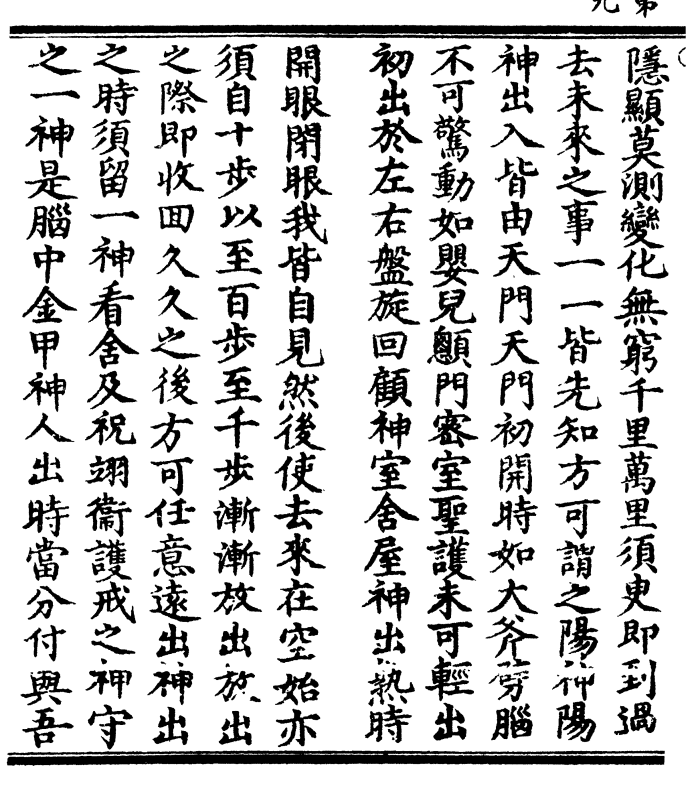 第九
隱顯莫測變化無窮千里萬里須臾即到過
去未來之事一一皆先知方可謂之陽神陽
神出入皆由天門天門初開時如大斧劈腦
不可驚動如嬰兒顖門密室聖護未可輕出
初出於左右盤旋回顧神室舍屋神出熟時
開眼閉眼我皆自見然後使去來在空始亦
須自十步以至百步至千步漸漸放出放出
之際即收回久久之後方可任意遠出神出
之時須留一神看舍及祝翊衞護戒之神守
之一神是腦中金甲神人出時當分付與吾